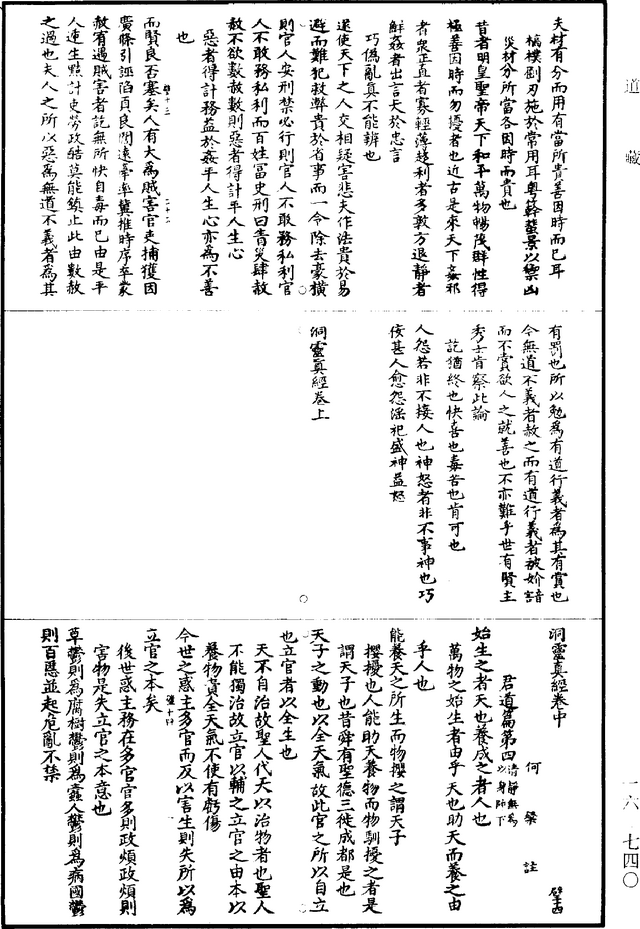 道藏
夫材有分而用有當所貴善因時而已耳
槁樸刬刃施於常用耳粤蓊蟄景以禦凶
災材分所當各因時而貴也
昔者明皇聖帝天下和平萬物暢茂群性得
極善因時而勿擾者也近古是來天下姦邪
者衆正直者寡輕薄趍利者多敦方退靜者
鮮姦者出言大於忠言
巧偽亂真不能辨也
遂使天下之人交相疑害悲夫作法貴於易
避而難犯救弊貴於省事而一令除去豪横
則官人安刑禁必行則官人不敢務私利官
人不敢務私而百姓冨史刑曰眚災肆赦
赦不欲數赦數則惡者得計平人生心
惡者得計務益於姦平人生心亦為不善
也
而賢良否塞矣人有大為賊害官吏捕獲因
廣條引誣陷貞良閒遠牽率冀推時序卒蒙
赦有過賊害者訖無所快自毒而已由是平
人連生黠計吏勞政酷莫能鎮止此由數赦
之過也夫人之所以惡為無道不義者為其
有罰也所以勉為有道行義者為其有賞也
今無道不義者赦之而有道行義者被妎諳
而不賞欲人之就善也不亦難乎世有賢主
秀士肯察此論
訖猶終也快喜也毒苦也肯可也
人怨若非不接人也神怒者非不事神也巧
佞甚人愈怨淫祀盛神益怒
洞靈真經卷上
洞靈真經卷中
何 粲 註 壁十四
君道篇第四 清靜無為以身帥下
始生之者天也養成之者人也
萬物之始生者由乎天也助天而養之由
乎人也
能養天之所生而物攖之謂天子
攖擾也人能助天養物而物馴擾之者是
謂天子也昔舜有聖德三徙成都是也
天子之動也以全天氣故此官之所以自立
也立官者以全生也
天不自治故聖人代天以治物者也聖人
不能獨治故立官以輔之立官之由本以
養物資全天氣不使有虧傷
今世之惑主多官而反以害生則失所以為
立官之本矣
後世惑主務在多官官多則政煩政煩則
害物是失立官之本意也
草鬱則為腐樹鬱則為蠹人鬱則為病國鬱
則百慝並起危亂不禁
一六 七四〇